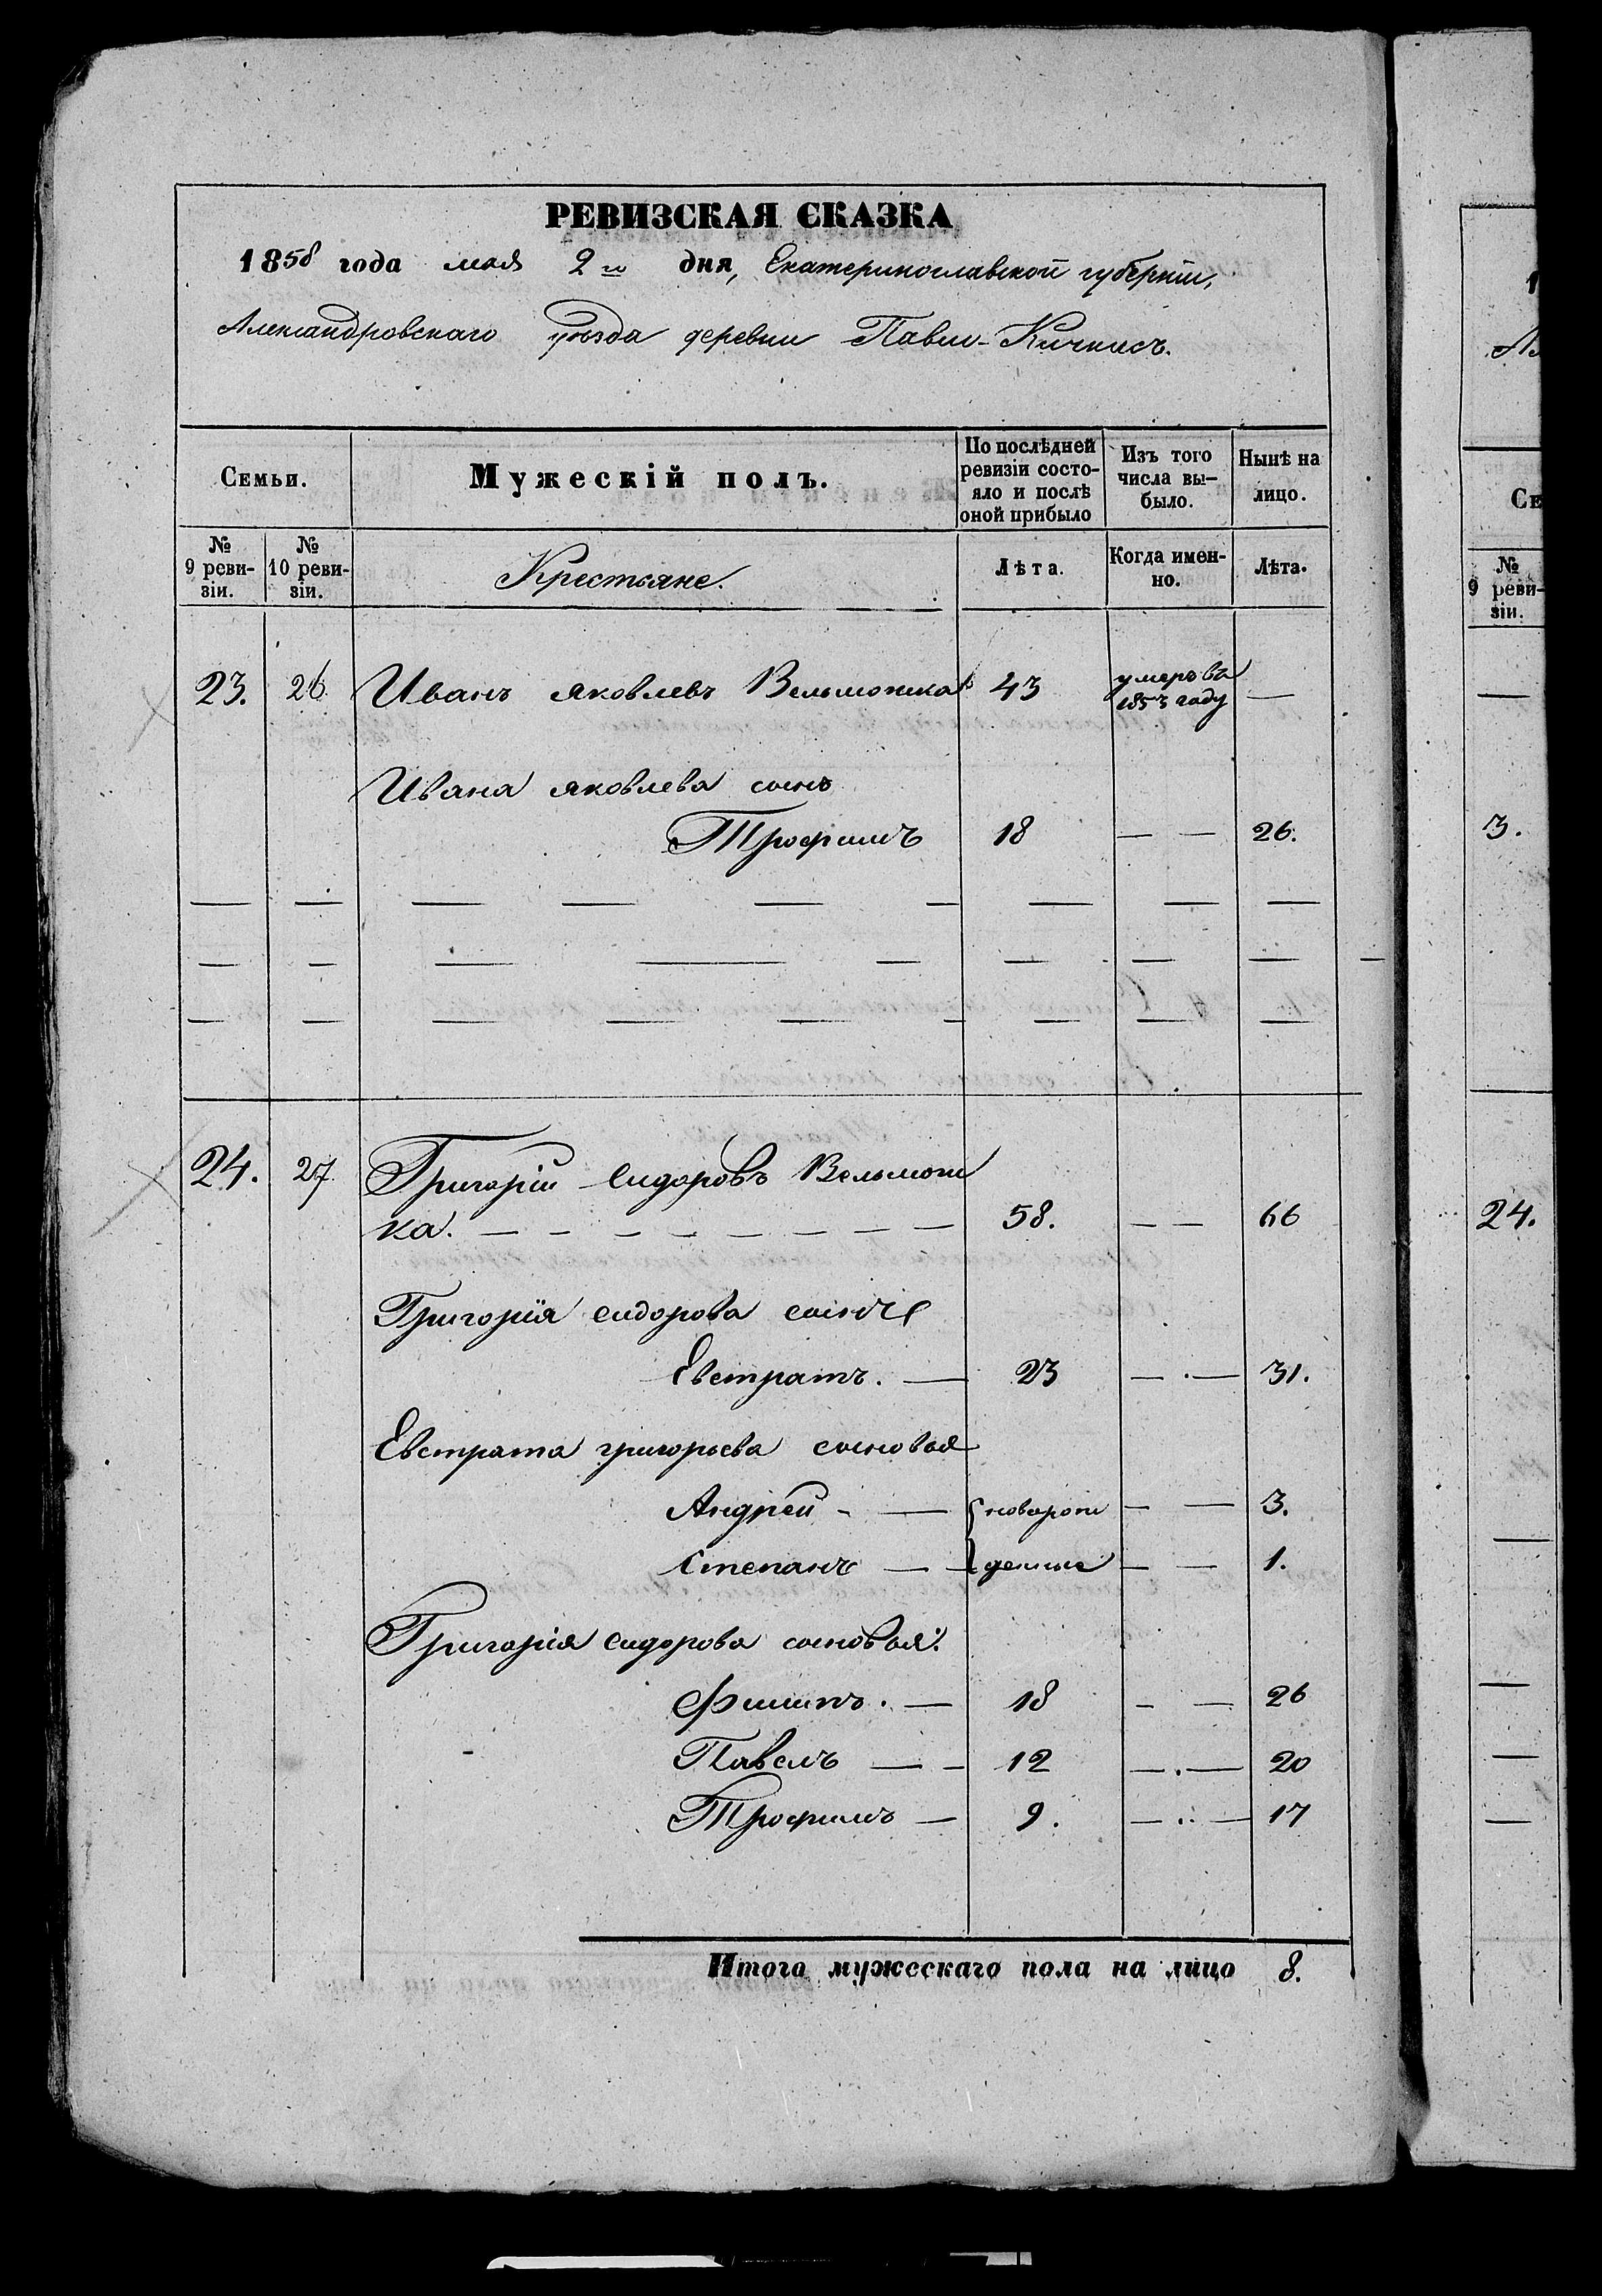 РЕВИЗСКАЯ СКАЗКА
1858 года мая 2го дня, Екатеринославской губерніи,
Александровскаго уѣзда деревни Павло-Кичкасъ.
Семьи.
Мужескій полъ.
По послѣдней ревизіи состояло и послѣ оной прибыло
Изъ того числа вы-было.
Нынѣ на лицо.
№ 9 реви-зіи.
№ 10 реви-зіи.
Крестьяне.
Лѣта.
Когда имен-но.
Лѣта.
23. 26 Иванъ яковлевъ Вельможка 43 умеръ въ 1853 году —
Ивана яковлева сынъ
Трофимъ 18 — — 26.
24. 27 Григорій Сидоровъ Вельмож
ка. — — — — — — — — 58. — — 66
Григорія сидорова сынъ
Евстратъ. — 23 — . — 31.
Евстрата григорьева сыновья
Андрей - — новорож — — 3.
Степанъ — — денные — — 1.
Григорія сидорова сыновья:
Филипъ. — 18 — — 26
Павелъ — — 12 — . — 20
Трофимъ — 9. — .. — 17
Итого мужескаго пола на лицо 8.
1
Ал
Се
№
9 реви-
зіи.
3.
24.